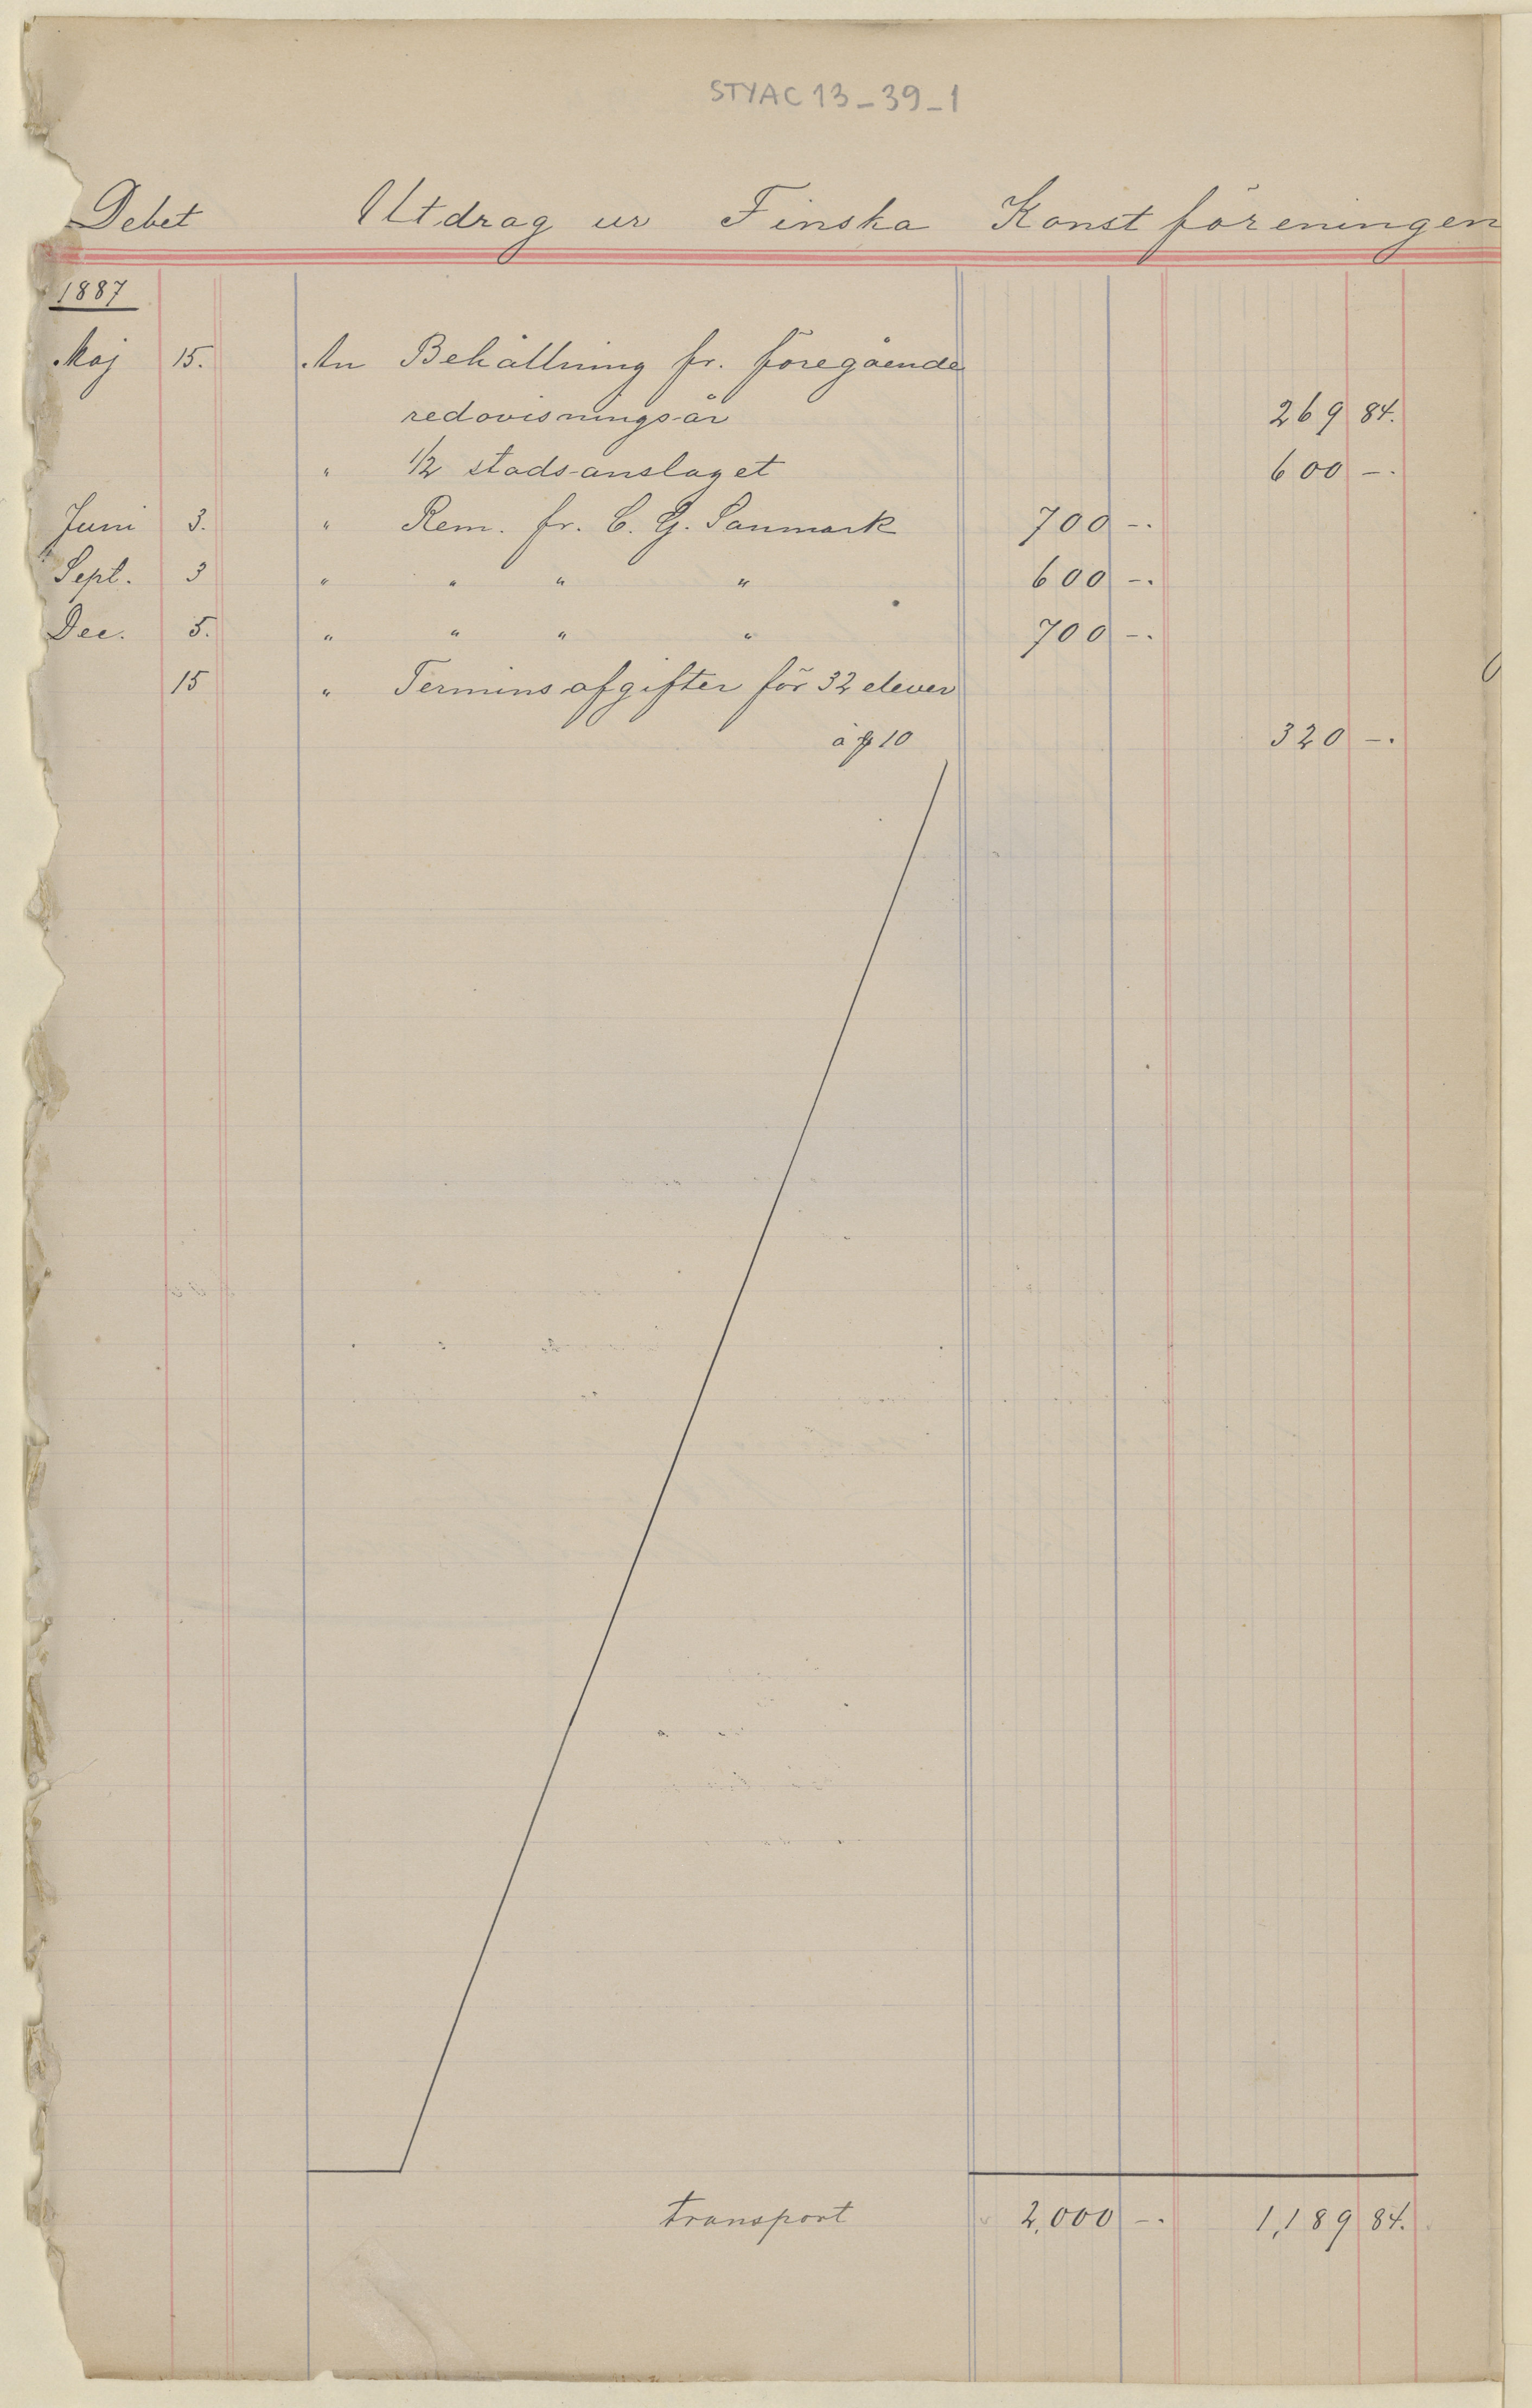 STYAC 13_39_1
Debet Utdrag ur Finska Konstföreningen
1887
Maj 15. An Behållning fr. föregående
redovisningsår 269 84.
" 1/2 stads-anslaget 600 -.
Juni 3. " Rem. fr. C. G. Sanmark 700 -.
Sept. 3 " " " " 600 -.
Dec. 5. " " " " 700 -.
15 " Terminsafgifter för 32 elever
à 10 320 -.
transport 2,000 -. 1,189 84.